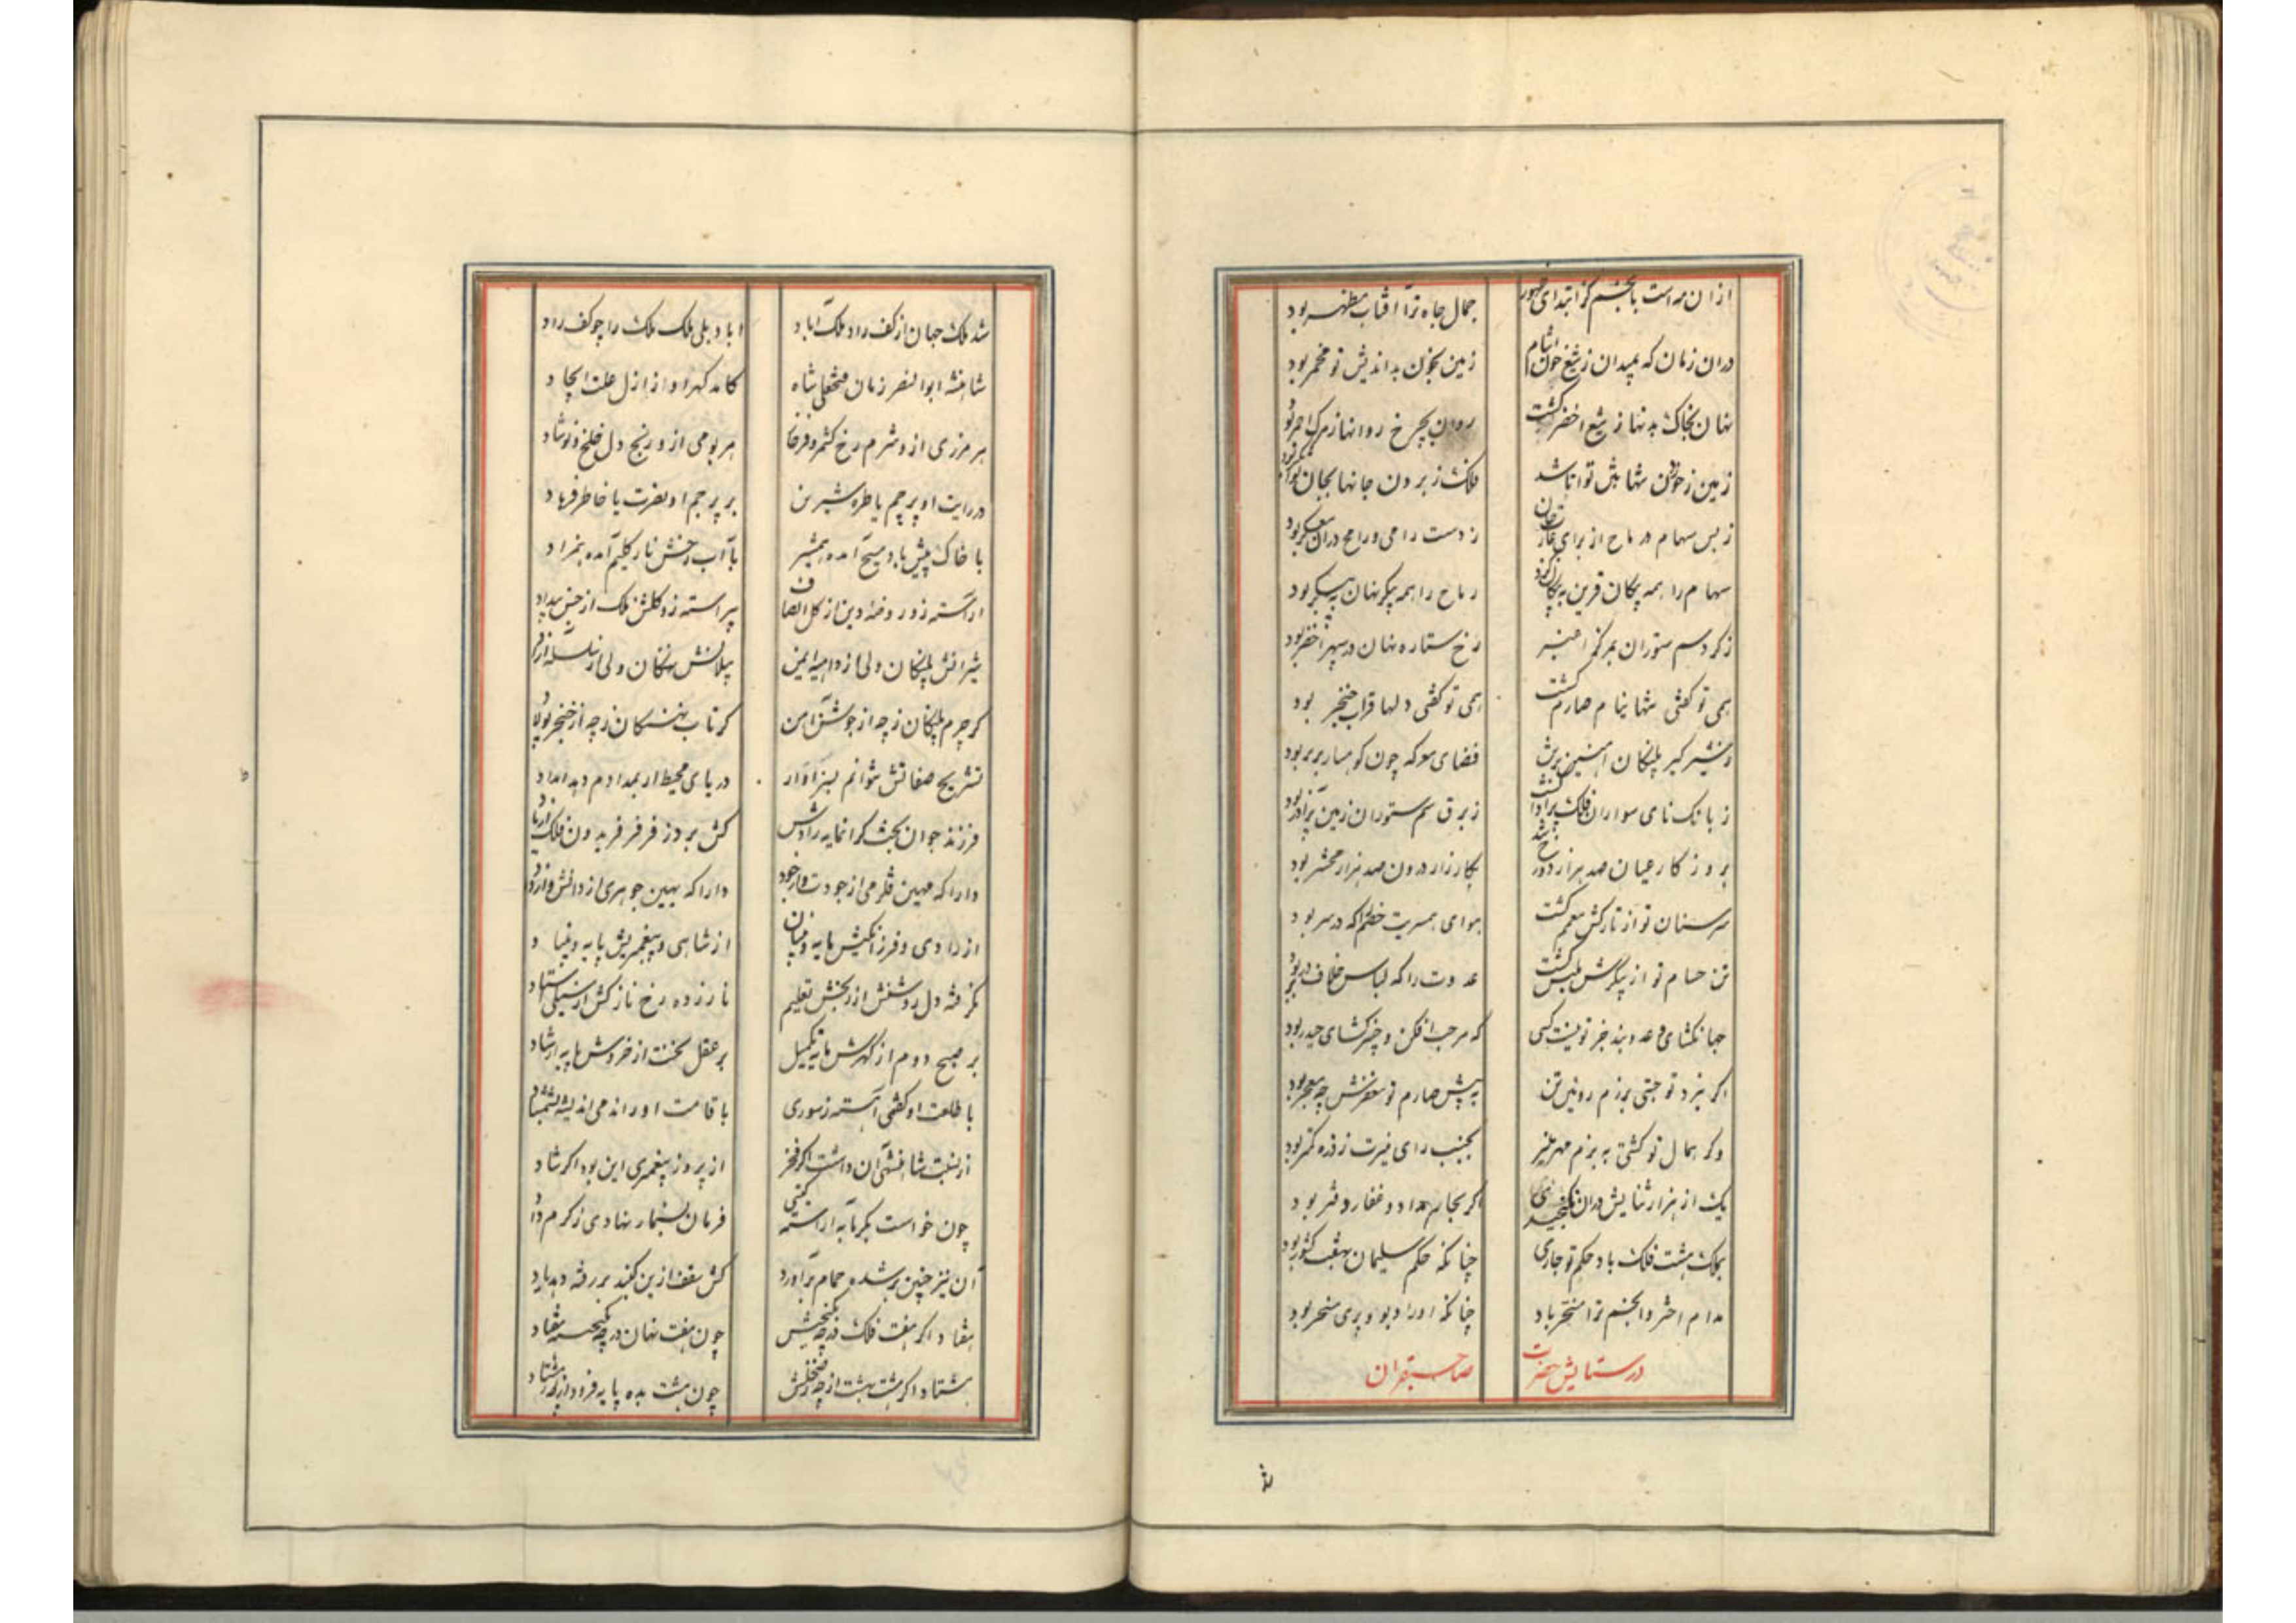 ازان سراست بانجم کز ابتدای ظهور
جمال جاه ترا آفتاب مظهر بود
دران زمان که بمیدان ز تیغ خون آشام
زمین بخون بداندیش تو مخمر بود
نهان بخاک بدنها ز تیغ اخضر گشت
روان بچرخ روانها ز مرک احمر بود
زمین ز خون
فلک ز بردن جانها بجان
ز بس سهام و رماح از برای
ز دست رامی و رامح دران معسکر بود
سهام را همه پیکان قرین به پیکان بود
رماح را همه پیکر نهان به پیکر بود
ز کرد سم ستوران بمرکز اغبر
رخ ستاره نهان در سپهر اخضر بود
همی تو گفتی شها نیام صارم گشت
همی تو گفتی دلها قراب خنجر بود
ز شیر کیر پلنگان آهنین برش
فضای معرکه چون کوهسار بربر بود
ز بانک نای سواران فلک پر آوا گشت
ز برق سم ستوران زمین پر آذر بود
بروز کار عیان صد هزار دوزخ شد
بکارزار درون صد هزار محشر بود
سر سنان تو از تارکش معمم گشت
هوای همسریت خصم را که در سر بود
تن حسام تو از پیکرش ملبس گشت
عدوت را که لباس خلاف در بر بود
جهانکشای و عدوبند جز تو نیست کسی
که مرحب افکن و خیبرکشای حیدر بود
اگر نبرد تو جستی برزم روئین تن
به پیش صارم تو مغفرش چو معجر بود
وکر همال تو کشتی به بزم مهر منیر
بجنب رای منیرت ز ذره کمتر بود
یک از هزار ثنایش دران نگنجیدی
اگر بحار مداد و قفار دفتر بود
بملک هشت فلک باد حکم تو جاری
چنانکه حکم سلیمان بهفت کشور بود
مدام اختر و انجم ترا مسخر باد
چنانکه او را دیو و پری مسخر بود
در ستایش حضرت
صاحبقران
شد ملک جهان از کف راد ملک آباد
آباد بلی ملک ملک را چو کف راد
شاهنشه ابوالنصر زمان فتحعلی شاه
کامد کهر او از ازل علت ایجاد
هر مرزی ازو شرم رخ کشمر و فرخار
هر بومی ازو رنج دل خلخ و نوشاد
در رایت او پرچم یا طره شیرین
بر پرچم او نصرت یا خاطر فرهاد
با خاک پیش باد مسیح آمده همشیر
با آب رخش نار کلیم آمده همزاد
آراسته زو روضه دین از کل انصاف
پیراسته زو کلشن ملک از خس بیداد
شیرانش پلنگان ولی از واهمه ایمن
پیلانش نهنگان ولی از سلسله آزاد
کر چرم پلنگان ز چه از جوشن آهن
کر ناب نهنگان ز چه از خنجر پولاد
تشریح صفاتش نتوانم بسزا ار
دریای محیط ار بمدادم دهد امداد
فرزند جوان بخت کرانمایه رادش
کش برد ز فر فر فریدون فلک از یاد
دارا که مهین قلزمی از جودت و از جود
دارا که بهین جوهری از دانش و از داد
از رادی و فرزانگیش مایه و بنیان
از شاهی و پیغمبریش پایه و بنیاد
نگرفته دل روشنش از بخش تعلیم
نارزده رخ نازکش از سیلی استاد
بر صبح دوم از کهرش مایه تکمیل
بر عقل نخست از خردش پایه ارشاد
با طلعت او کفتمی آهسته ز سوری
با قامت او راندمی اندیشه ز شمشاد
از نسبت شاهنشهی آن داشت اگر فخر
از پرورز پیغمبری این بود اگر شاد
چون خواست بکرمابه آراسته کیتی
فرمان بسنمار نهادی ز کرم داد
آن نیز چنین بر شده حمام برآورد
کش سقف ازین کنبد بر رفته دهد یاد
هفتاد اگر هفت فلک
چون هفت نهان در چه
هشتاد اگر هشت بهشت از چه
چون هشت بده پایه فرود از